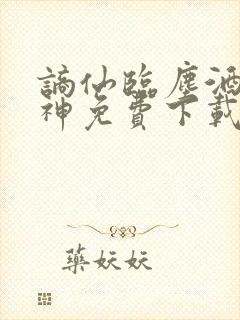 謫仙臨塵酒
神免費下載
藥妖妖